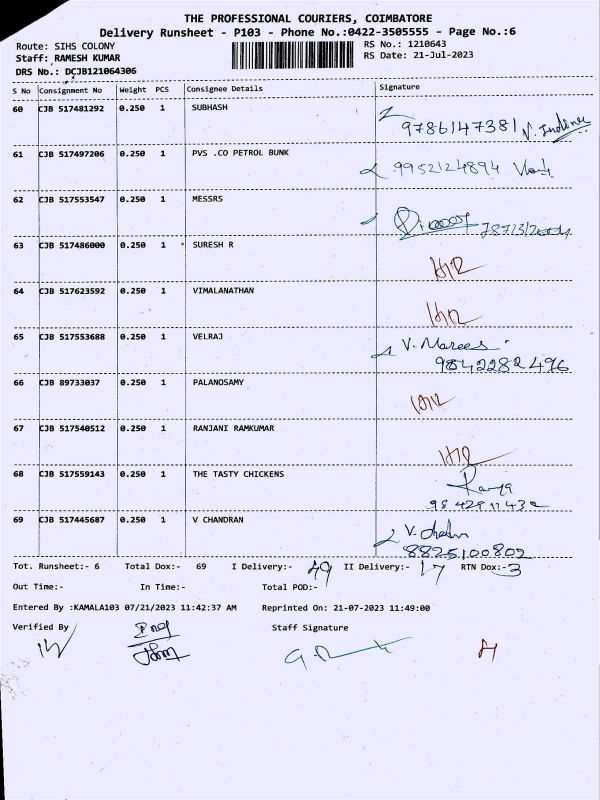 THE PROFESSIONAL COURIERS, COIMBATORE
Delivery Runsheet - P103 - Phone No.:0422-3505555 - Page No.:6
Route: SIHS COLONY RS No.: 1210643
Staff: RAMESH KUMAR RS Date: 21-Jul-2023
DRS No.: DCJB121064306
S No Consignment No Weight PCS Consignee Details Signature
60 CJB 517481292 0.250 1 SUBHASH
9786147381
61 CJB 517497206 0.250 1 PVS .CO PETROL BUNK
9952124894
62 CJB 517553547 0.250 1 MESSRS
63 CJB 517486000 0.250 1 SURESH R
64 CJB 517623592 0.250 1 VIMALANATHAN
65 CJB 517553688 0.250 1 VELRAJ
V. Marees
9842282496
66 CJB 89733037 0.250 1 PALANOSAMY
67 CJB 517540512 0.250 1 RANJANI RAMKUMAR
68 CJB 517559143 0.250 1 THE TASTY CHICKENS
69 CJB 517445687 0.250 1 V CHANDRAN
8825100802
Tot. Runsheet:- 6 Total Dox:- 69 I Delivery:- 49 II Delivery:- 17 RTN Dox:- 3
Out Time:- In Time:- Total POD:-
Entered By :KAMALA103 07/21/2023 11:42:37 AM Reprinted On: 21-07-2023 11:49:00
Verified By Staff Signature